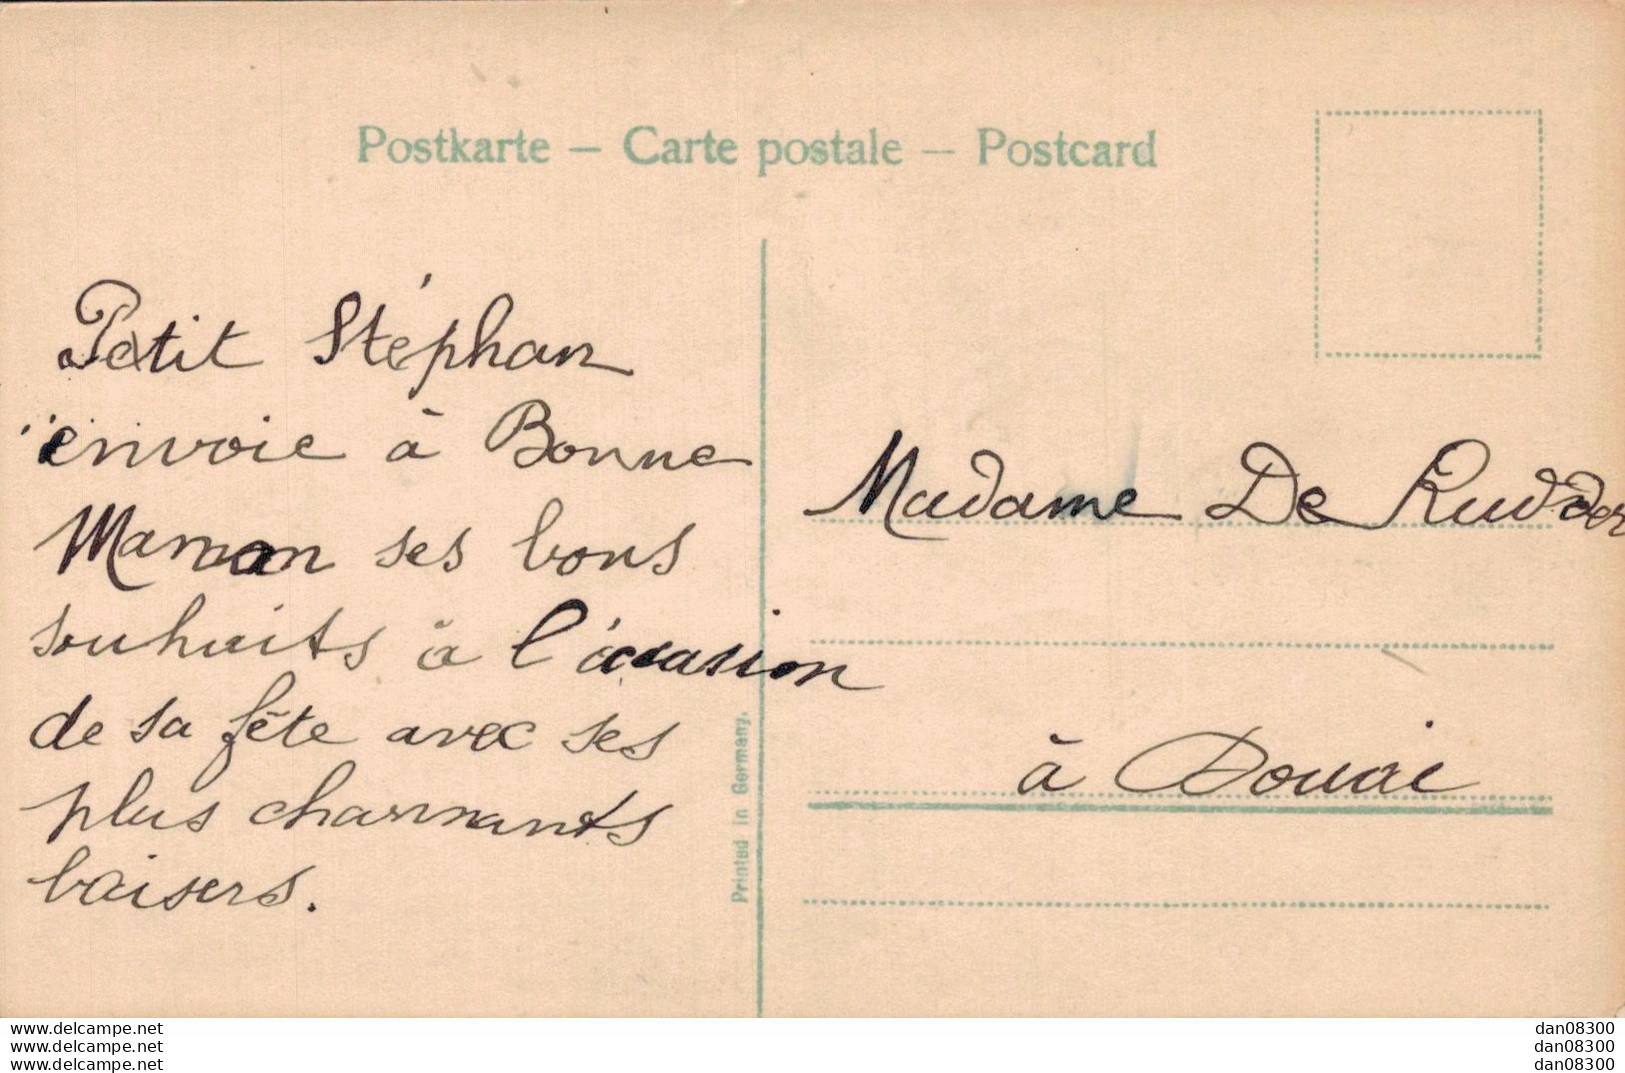 Postkarte – Carte postale – Postcard
Petit Stéphan
envoie à Bonne
Maman ses bons
souhaits à l'occasion
de sa fête avec ses
plus charmants
baisers.
Printed in Germany.
Madame De Rudder
à Douai
www.delcampe.net
www.delcampe.net
www.delcampe.net
dan08300
dan08300
dan08300